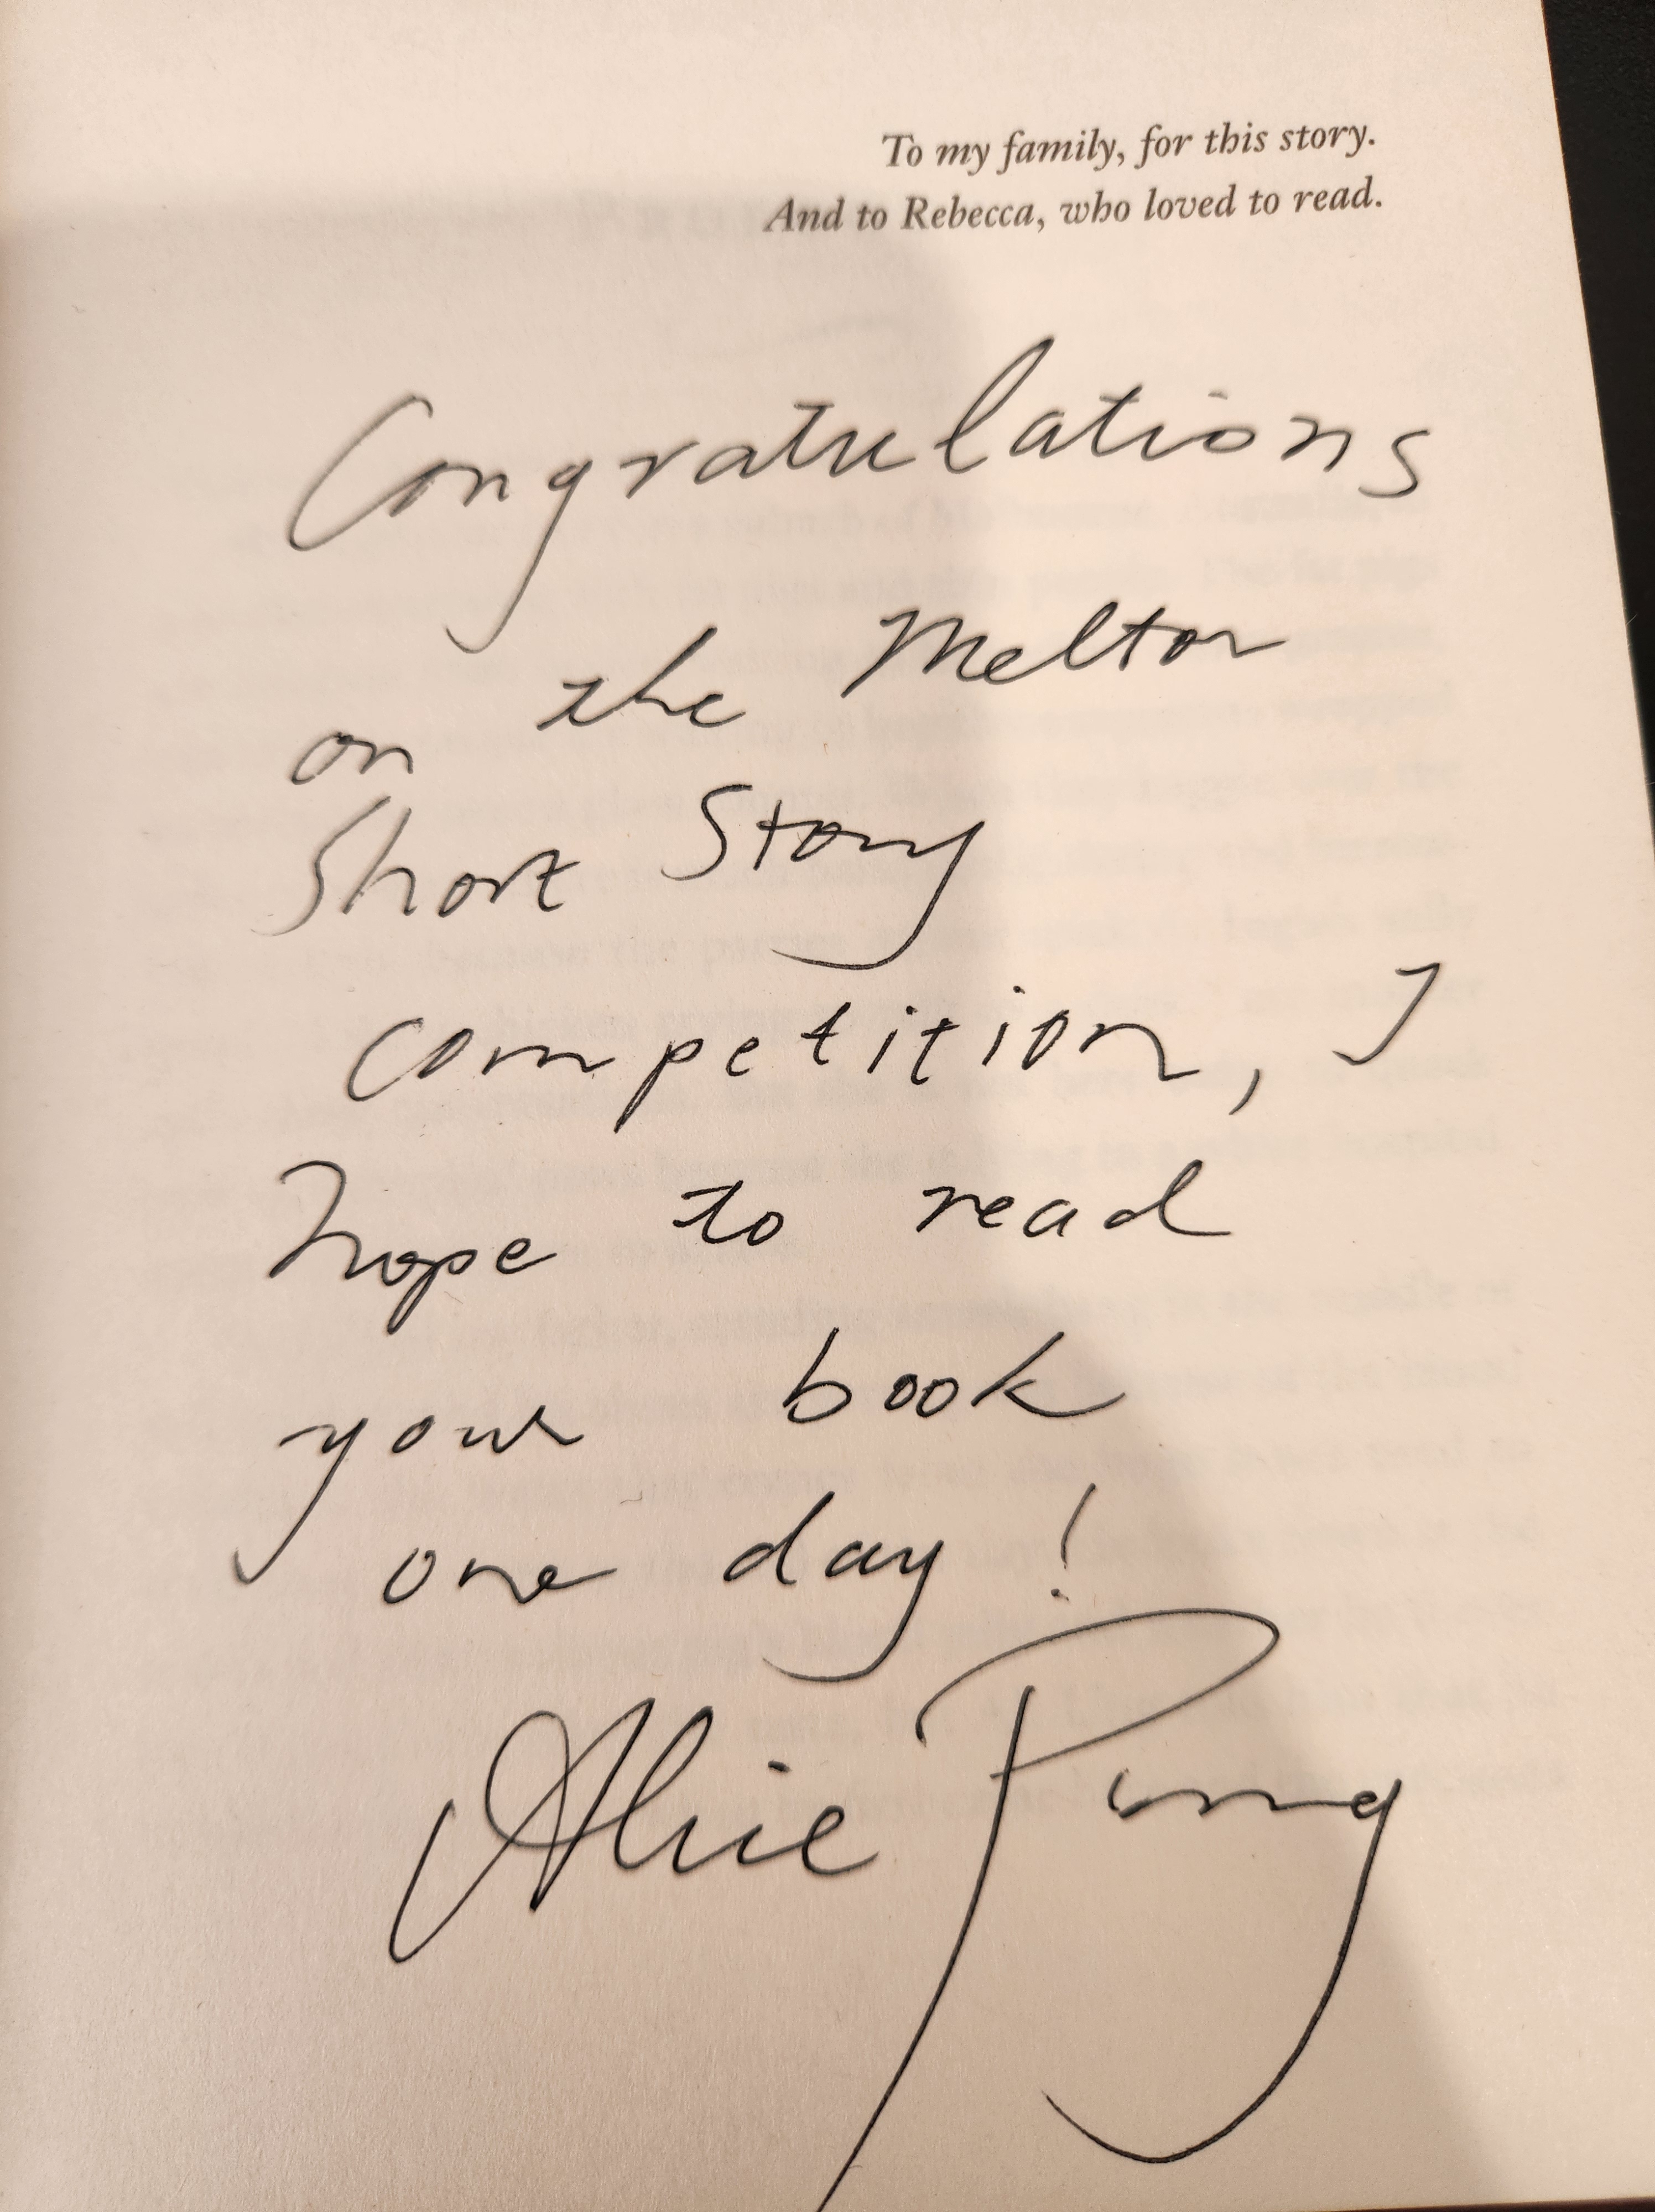 To my family, for this story.
And to Rebecca, who loved to read.
Congratulations
on the Melton
Short Story
competition, I
hope to read
your book
one day!
Alice Pung